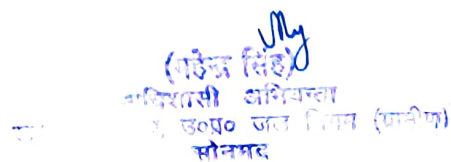 (महेन्द्र सिंह)
अधिशासी अभियन्ता
उ०प्र० जल निगम (ग्रामीण)
सोनभद्र